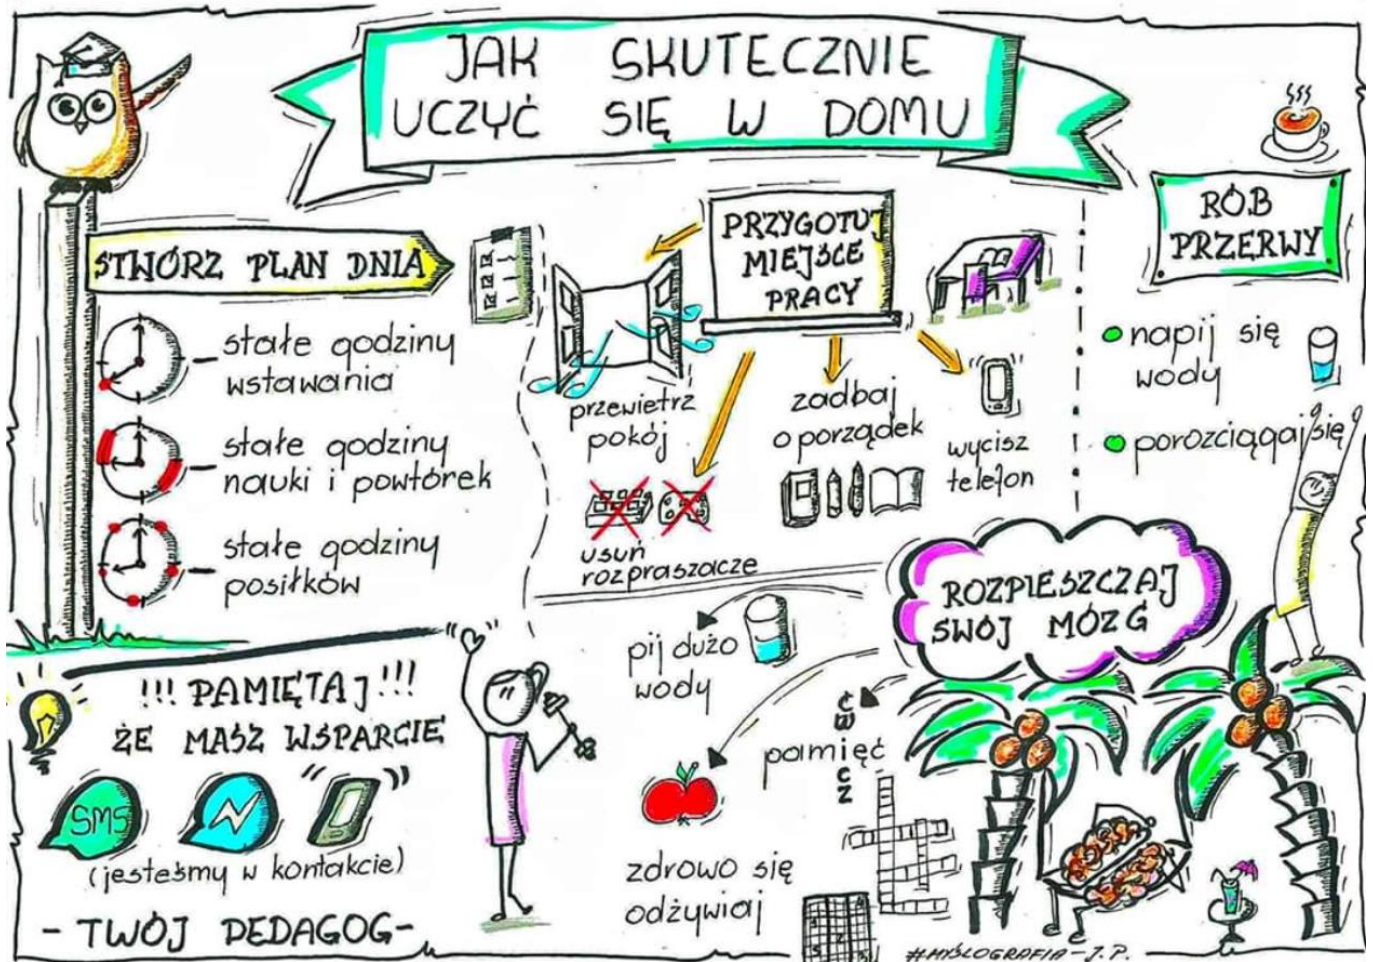 JAK SKUTECZNIE
UCZYĆ SIĘ W DOMU
STWÓRZ PLAN DNIA
stałe godziny
wstawania
stałe godziny
nauki i powtórek
stałe godziny
posiłków
PRZYGOTUJ
MIEJSCE
PRACY
przewietrz
pokój
usuń
rozpraszacze
zadbaj
o porządek
wycisz
telefon
RÓB
PRZERWY
napij się
wody
porozciągaj się
ROZPIESZCZAJ
SWÓJ MÓZG
pij dużo
wody
zdrowo się
odżywiaj
ćwicz
pamięć
!!! PAMIĘTAJ!!!
ŻE MASZ WSPARCIE
SMS
(jesteśmy w kontakcie)
- TWÓJ PEDAGOG-
#MYŚLOGRAFIA-J.P.